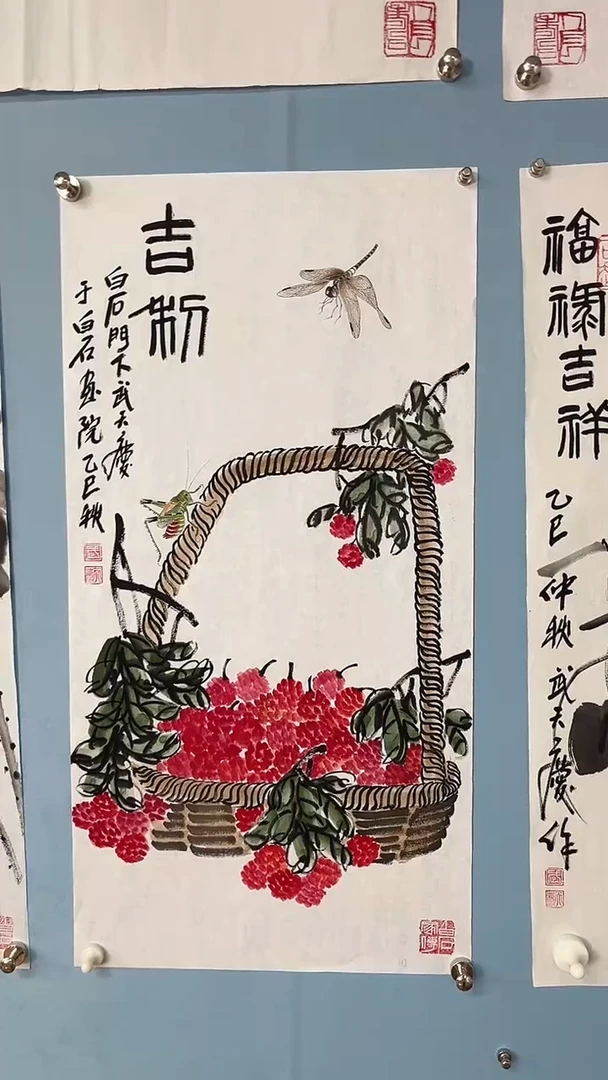 吉利
白石門下武天慶
于白石畫院乙巳秋
福祿吉祥
乙巳仲秋武天慶作